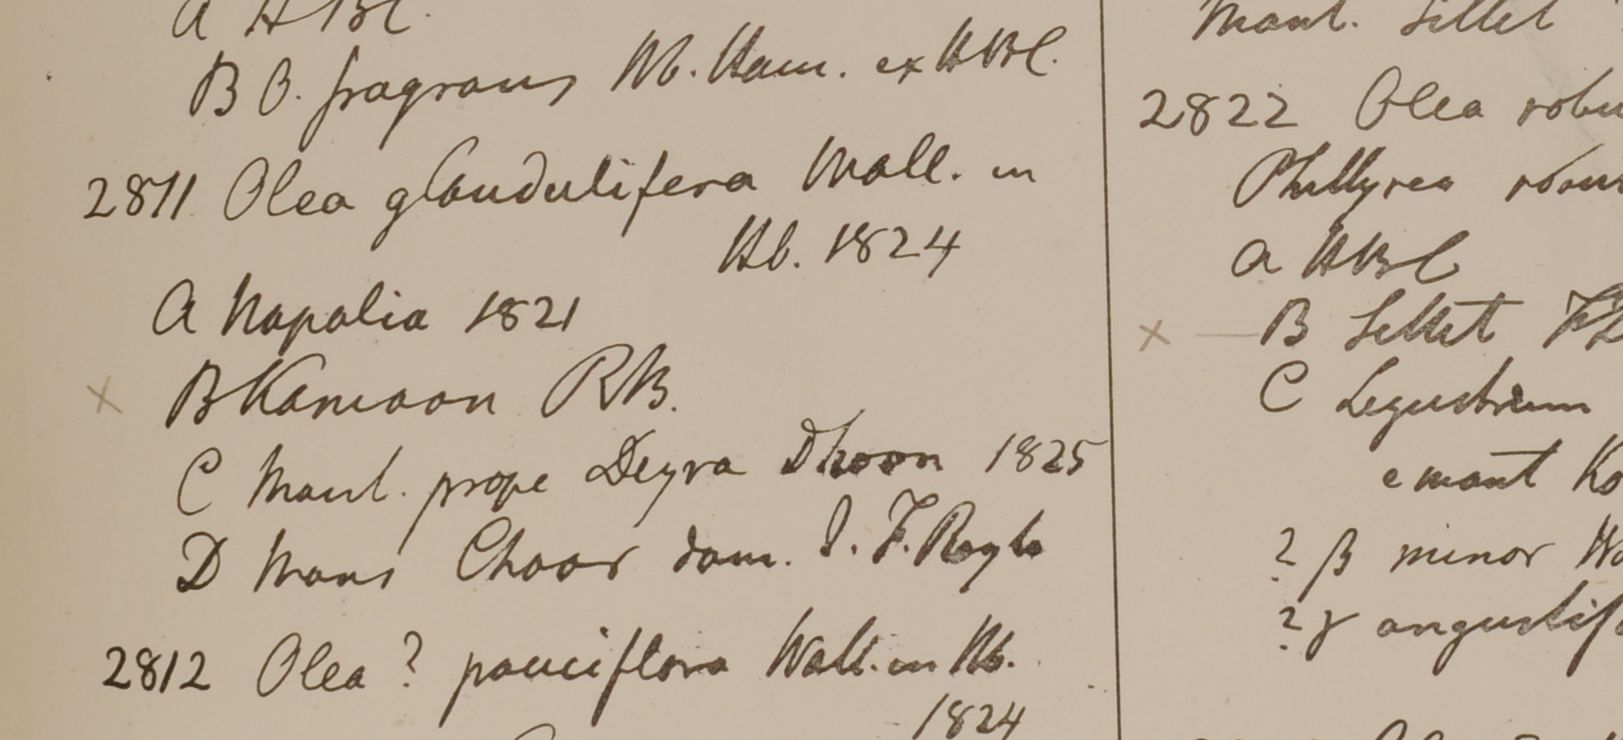 a HBC.
B O. fragrans Hb. Ham. ex HBC.
2811 Olea glandulifera Wall. in
Hb. 1824
a Napalia 1821
x B Kamaon RB.
C Mont. prope Deyra Dhoon 1825
D Mons Choor dom. J. F. Royle
2812 Olea ? pauciflora Wall. in Hb.
1824
Mont. Sillet
2822 Olea robu
Phillyrea robus
a HBC
x — B Sillet
C Ligustrum
e mont Ko
? β minor Wa
? γ angustif